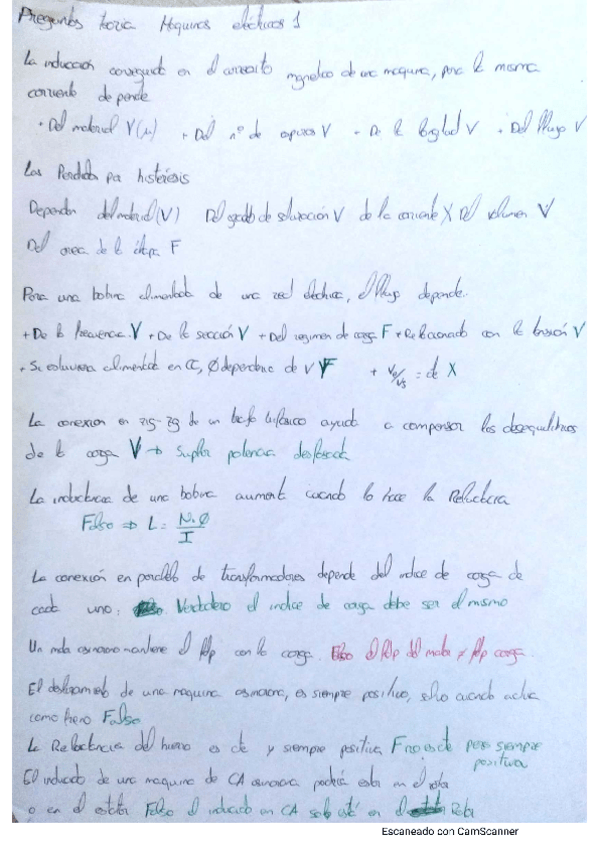 Preguntas teoria Maquinas eléctricas 1
La inducción conseguida en el circuito magnético de una maquina, para la misma
corriente depende
• Del material V(μ) + Del nº de espiras V - De la longitud V . Del flujo V
Las Perdidas por histeresis
Dependen del material (V) Del grado de saturación V de la corriente X Del volumen V
Del area de la chapa F
Para una bobina alimentada de una red eléctrica, el flujo depende.
+ De la frecuencia V + De la sección V + Del regimen de carga F + Relacionado con la tensión V
+ Si estuviera alimentada en CC, Ø dependeria de V F + = cte X
La conexion en zig-zag de un trafo trifasico ayuda a compensar los desequilibrios
de la carga V → Suplir potencia desfasada
La inductancia de una bobina aumenta cuando lo hace la Reluctancia
Falso ⇒ L = N.Ø/I
La conexión en paralelo de transformadores depende del indice de carga de
cada uno: Verdadero el indice de carga debe ser el mismo
Un motor asincrono mantiene el fdp con la carga. Falso el fdp del motor ≠ fdp carga.
El deslizamiento de una maquina asincrona, es siempre positivo, salvo cuando actua
como freno Falso
La Reluctancia del hierro es cte y siempre positiva F no es cte pero siempre
positiva
El inducido de una maquina de CA asincrona podria estar en el rotor
o en el estator Falso el inducido en CA solo está en el Rotor
Escaneado con CamScanner